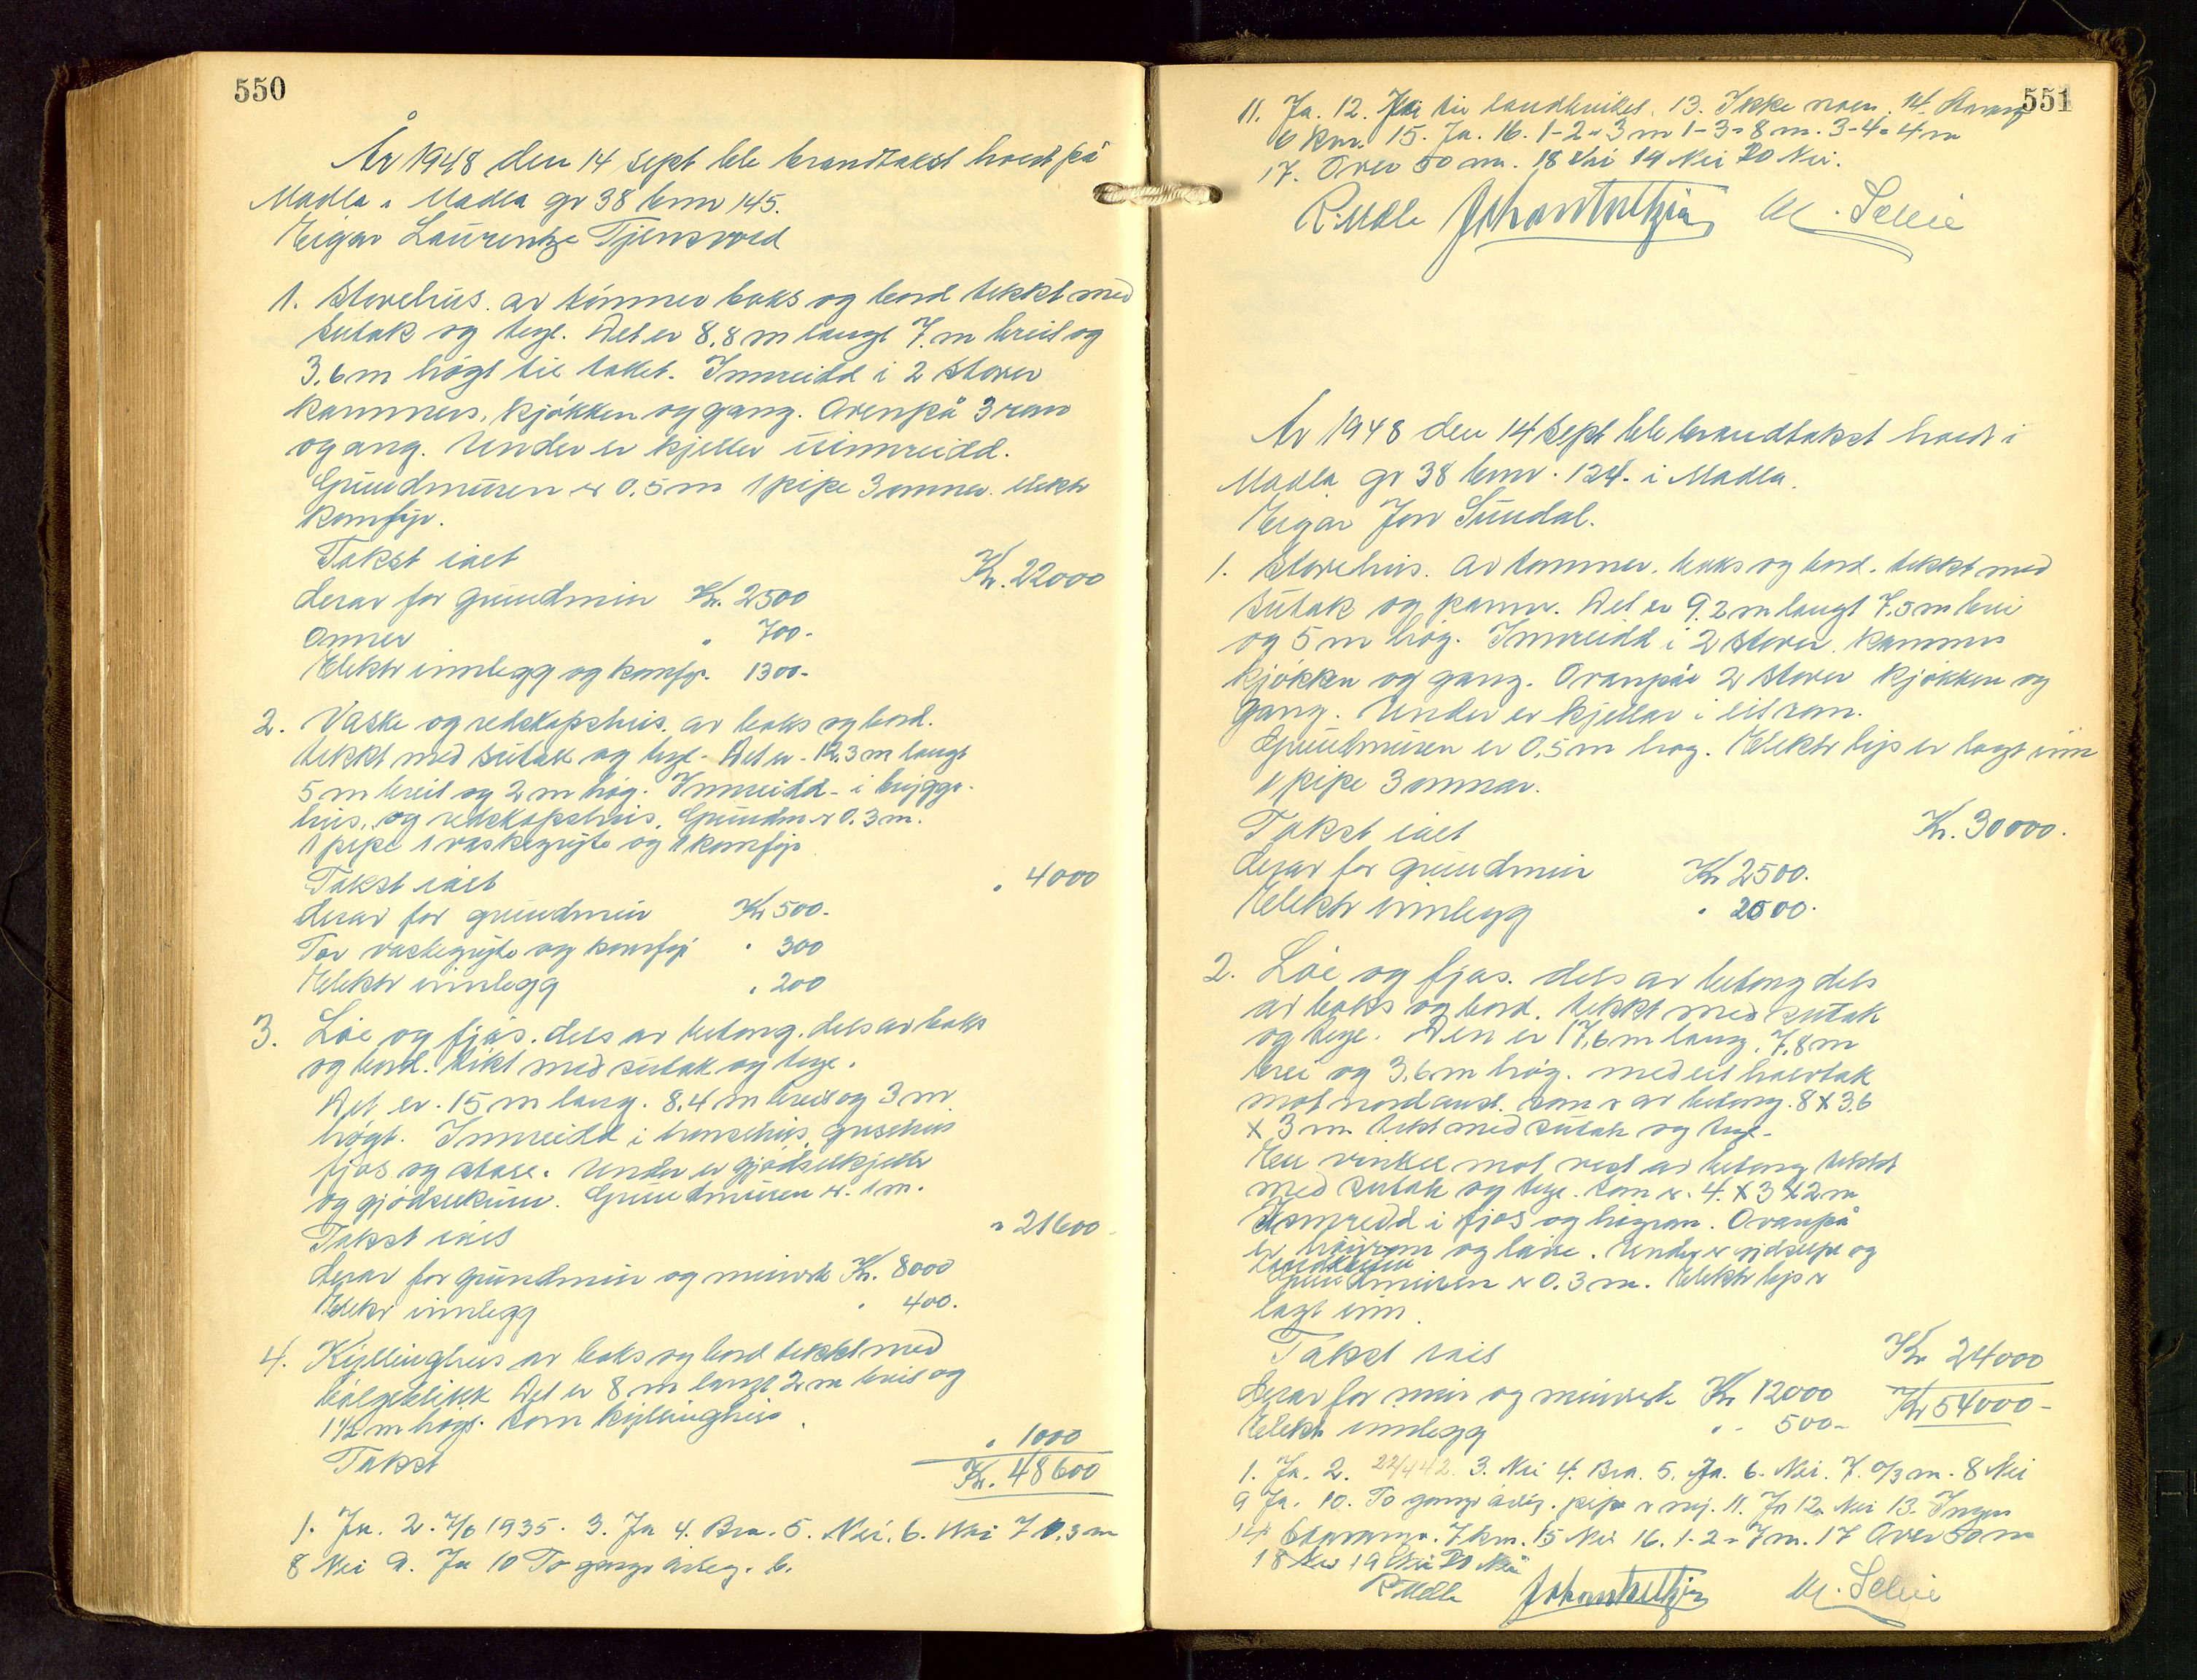 550
År 1948 den 14 sept ble brandtakst holdt på
Madla i Madla gr 38 bnr 145.
Eigar Laurentze Tjensvold
1. Storehus. av tømmer boks og bord tekkt med
sutak og tegl. Det er 8,8 m langt 7 m breit og
3,6 m høgt til taket. Innreidd i 2 stover
kammers, kjøkken og gang. Ovenpå 3 rom
og ang. Under er kjeller uinnreidd.
Grundmuren er 0,5 m 1 pipe 3 omner. elektr
komfyr.
Takst ialt Kr. 22000
derav for grundmur Kr. 2500
Omner " 700-
Elektr innlegg og komfyr. 1300-
2. Vaske og redskapshus. av boks og bord.
tekkt med sutak og tegl. Det er 12,3 m langt
5 m breit og 2 m høg. Innreidd i brygge-
hus, og redskapshus. Grundm er 0.3 m.
1 pipe 1 vaskegryte og 1 komfyr
Takst ialt " 4000
derav for grundmur Kr 500-
For vaskegryte og komfyr " 300
Elektr innlegg " 200
3. Løe og fjøs. dels av betong. dels av boks
og bord. tekt med sutak og tegl.
Det er 15 m lang. 8,4 m breit og 3 m
høgt. Innreidd i hønsehus, grisehus
fjøs og stall. Under er gjødselkjeller
og gjødselkum. Grundmuren er 1 m.
Takst ialt " 21600
derav for grundmur og murverk Kr. 8000
Elektr innlegg " 400.
4. Kyllinghus av boks og bord tekkt med
bølgeblikk Det er 8 m langt 2 m breit og
1 1/2 m høgt. som kyllinghus.
Takst " 1000
Kr. 48600
1. Ja. 2. 7/6 1935. 3. Ja 4. Bra. 5. Nei. 6. Nei 7 0,3 m
8 Nei 9. Ja 10 To ganger årleg. b.
551
11. Ja. 12. Nei til landbruket. 13. Ikke noen. 14. Stavang
6 km. 15. Ja. 16. 1-2 = 3 m 1-3 = 8 m. 3-4 = 4 m
17. Over 50 m. 18 Nei 19 Nei 20 Nei.
R. Melle M. Selvie
År 1948 den 14 sept ble brandtakst holdt i
Madla gr 38 bnr. 124. i Madla.
Eigar Jon Sundal.
1. Storehus. av tømmer. boks og bord. tekkt med
sutak og panner. Det er 9,2 m langt 7,5 m brei
og 5 m høg. Innreidd i 2 stover. kammers
kjøkken og gang. Ovanpå 2 stover kjøkken og
gang. Under er kjellar i eit rom.
Grundmuren er 0,5 m høg. Elektr lys er lagt inn
1 pipe 3 omnar.
Takst ialt Kr. 30000.
derav for grundmur Kr 2500.
Elektr innlegg " 2000.
2. Løe og fjøs. dels av betong dels
av boks og bord. tekkt med sutak
og tegl. Den er 17,6 m lang. 7,8 m
brei og 3,6 m høg. med eit halvtak
mot nordaust. som er av betong. 8 X 3,6
X 3 m tekt med sutak og tegl.
Ein vinkel mot vest av betong tekkt
med sutak og tegl. som er. 4 X 3 X 2 m
Innreidd i fjøs og høyrom. Ovanpå
er høyrom og låve. Under er og
Grundmuren er 0.3 m. Elektr lys er
lagt inn.
Takst ialt Kr 24000
derav for mur og murverk Kr 12000 Kr 54000-
Elektr innlegg " 500-
1. Ja. 2. 22/4 42. 3. Nei 4. Bra. 5. Ja. 6. Nei. 7. 0/3 m. 8 Nei
9 Ja. 10. To ganger årleg. pipe er ny. 11. Ja 12. Nei 13. Ingen
14 Stavanger. 7 km. 15 Nei 16. 1-2 = 7 m. 17 Over 50 m
18 Nei 19 Nei 20 Nei
R. Melle M. Selvie